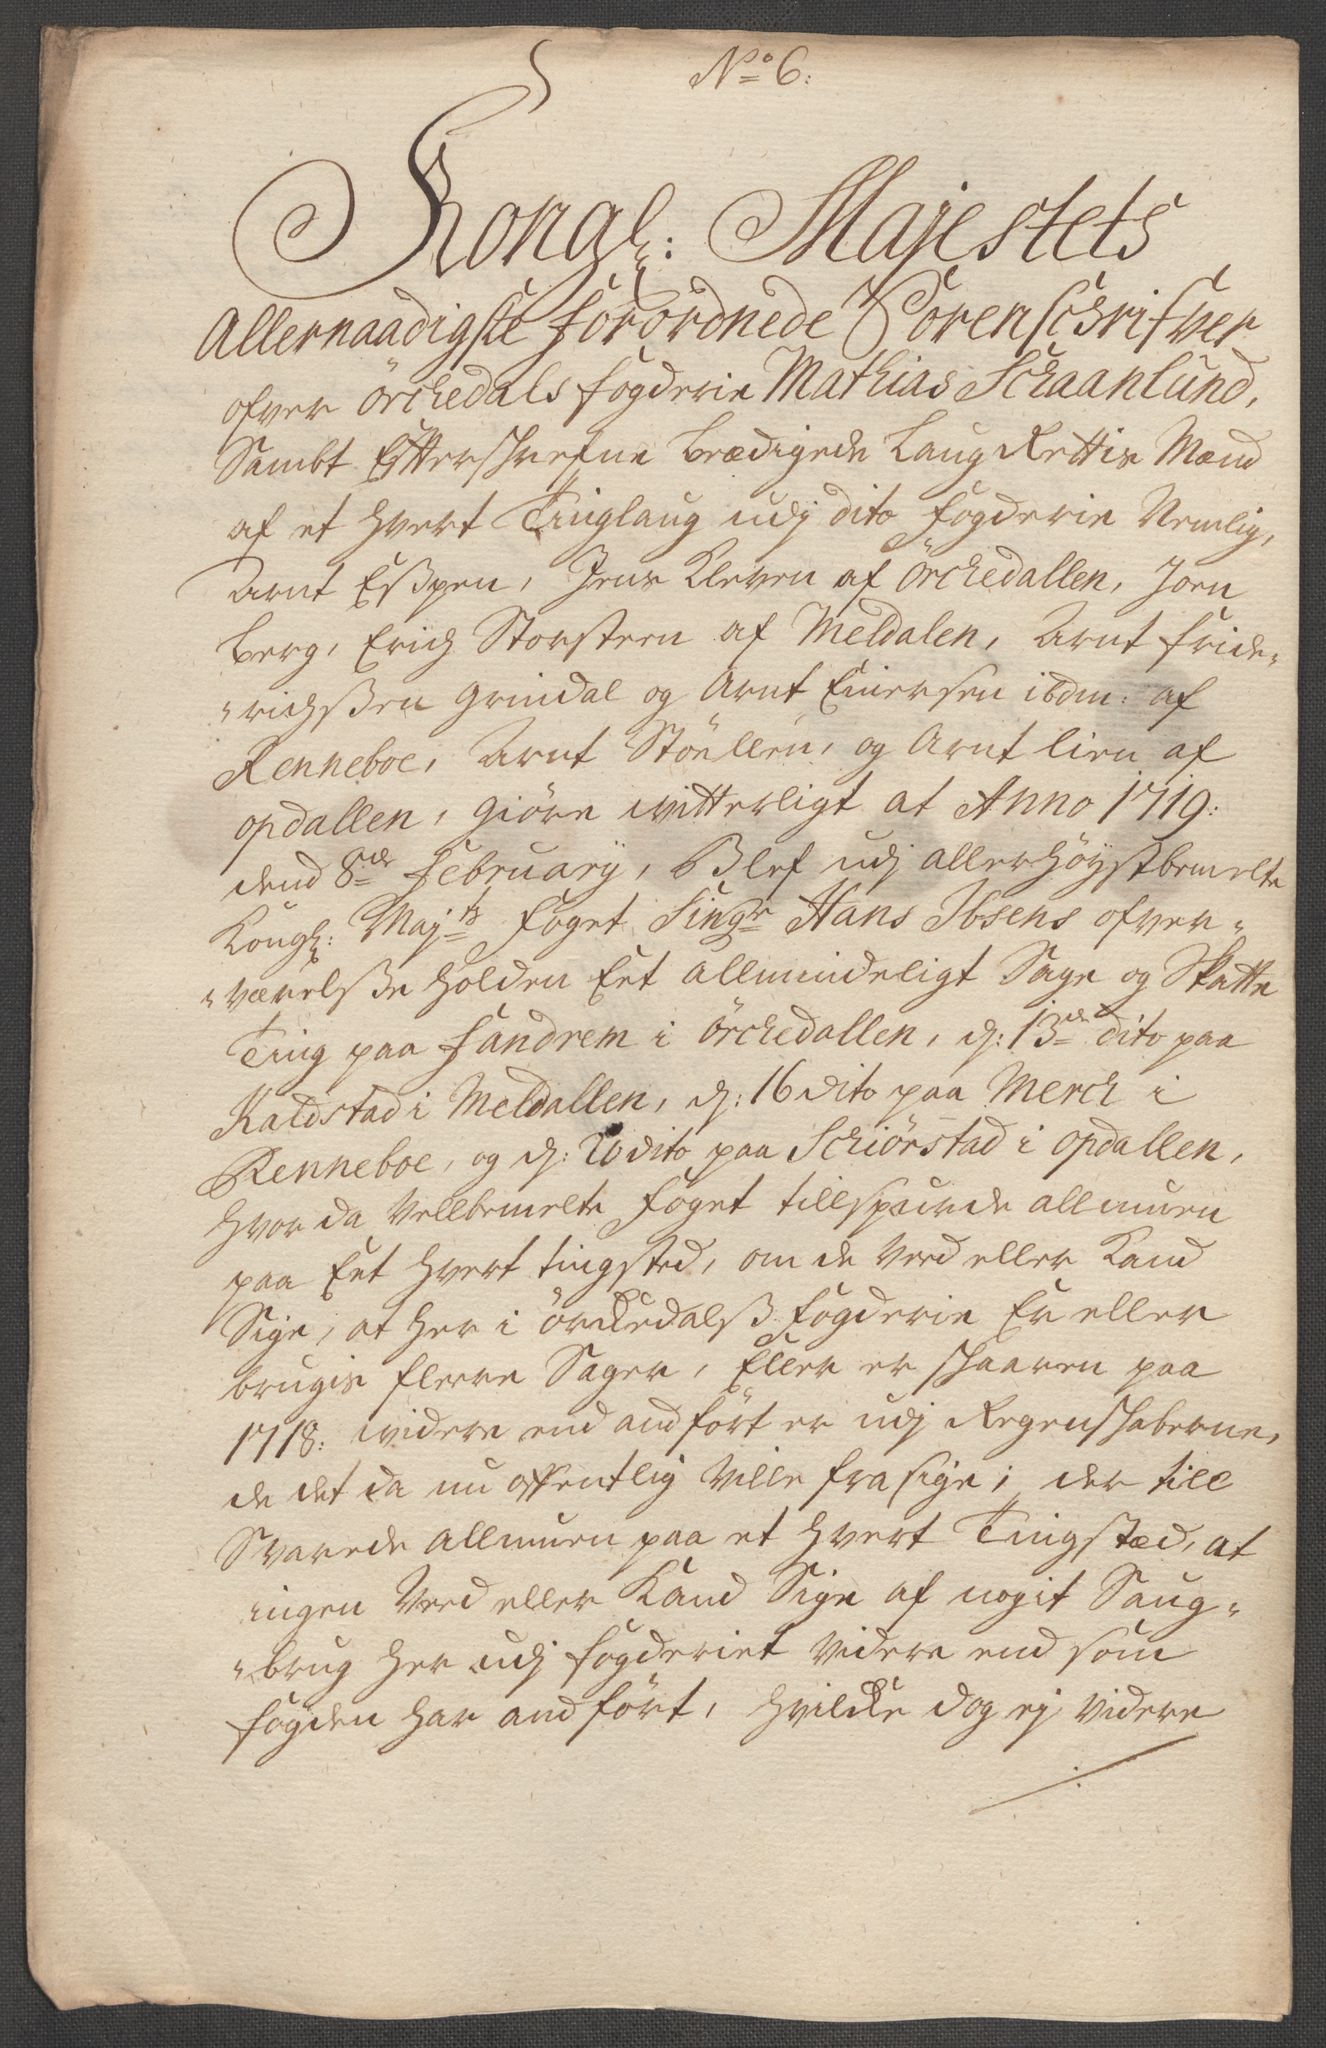 No 6:
Kongl: Majestets
Allernaadigste forordnede Sorenschrifver
ofver Örchedals fogderie Mathias Schaanlund,
Sambt Efterschrefne Eedsvorne Laug Rettis Mænd
af et hvert Tinglaug udj dito fogderie Nemlig,
Arnt Eßpen, Jens Kleven af Örchedallen, Joen
Berg, Erich Storsteen af Meldalen, Arnt fride-
-richßen Grindal og Arnt Einersen ibdm: af
Renneboe, Arnt Stöellen, og Arnt lien af
opdallen, Giöre witterligt at Anno 1719:
dend 8de February, Blef udj allerhöystbemelte
Kongl: Majts foget Singr Hans Ibsens ofver-
-værelße holden Eet allmindeligt Sage og Skatte
Ting paa fandrem i Örchedallen, d: 13de dito paa
Kaldstad i Meldallen, d: 16 dito paa Merch i
Renneboe, og d: 20 dito paa Schiörstad i opdallen,
hvor da Vellbemelte foget tillspurde allmuen
paa Eet hvert tingsted, om de Veed eller Kand
Sige, at her i Örckedalß fogderie Er eller
brugis fleere Sager, Eller er skaaren paa
1718: widere end andfört er udj Regenskaberne,
de det da nu offentlig Ville fra sige; der till
Svarede allmuen paa et hvert Tingstæd, at
ingen Veed eller Kand Sige af nogit Saug-
-brug her udj fogderiet Videre end som
fogden har andfört, hvilcke dog ej Videre